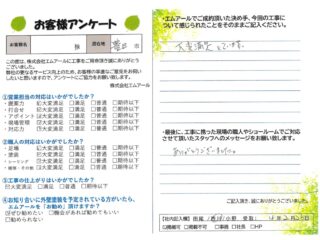 お客様アンケート
お客様名
様
居住地
市
この度は、株式会社エムアールに工事をご用命頂き誠にありがとうございました。
弊社の更なるサービス向上のため、お客様の率直なご意見をお伺いしたいと思いますので、ご協力の程お願い致します。
株式会社エムアール
①営業担当の対応はいかがでしたか?
・提案力 ☑大変満足 □満足 □普通 □期待以下
・打合せ ☑大変満足 □満足 □普通 □期待以下
・アポイント ☑大変満足 □満足 □普通 □期待以下
・現場管理 ☑大変満足 □満足 □普通 □期待以下
・対応力 ☑大変満足 □満足 □普通 □期待以下
②職人の対応はいかがでしたか?
・足場 ☑大変満足 □満足 □普通 □期待以下
・塗装 ☑大変満足 □満足 □普通 □期待以下
・シーリング ☑大変満足 □満足 □普通 □期待以下
☑大変満足 □満足 □普通 □期待以下
③工事の仕上りはいかがでしたか?
☑大変満足 □満足 □普通 □期待以下
④お知り合いに外壁塗装を予定されている方がいたら、エムアールを「お勧め」頂けますか?
☑ぜひ勧めたい □機会があれば勧めてもいい
□勧められない
・エムアールでご成約頂いた決め手、今回の工事について感じられたことをそのままご記入ください。
大変満足しています。
・最後に、工事に携った現場の職人やショールームでご対応させて頂いたスタッフへのメッセージをお願い致します。
ありがとうございました。
ご記入頂き、誠にありがとうございました。